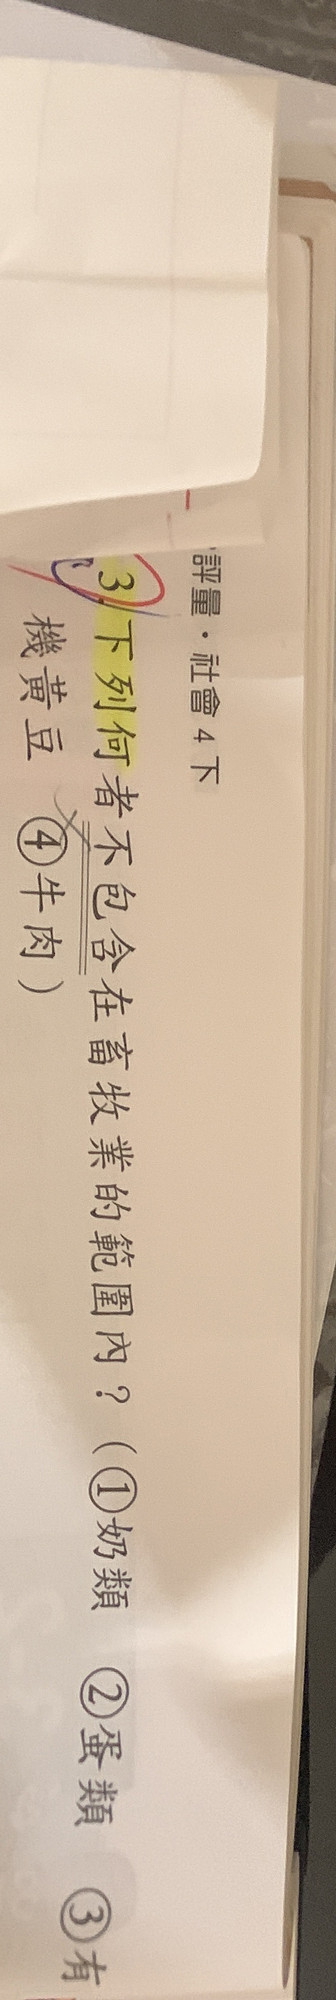 評量・社會4下
3.下列何者不包含在畜牧業的範圍內？（①奶類 ②蛋類 ③有
機黃豆 ④牛肉）